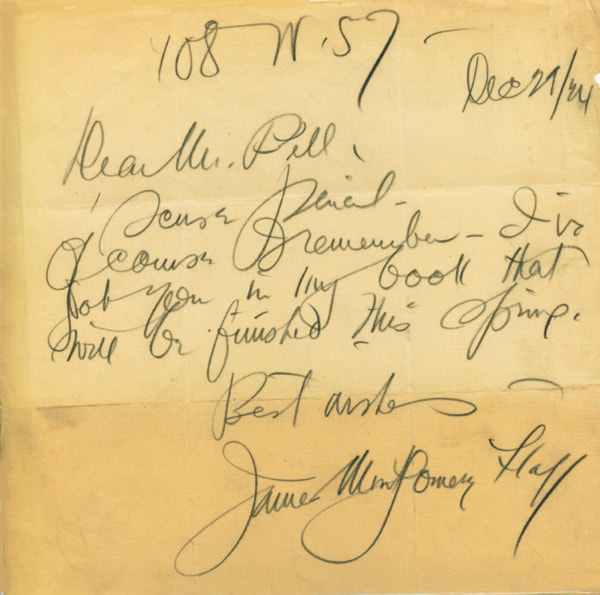 108 W. 57 –
Dec 29/44
Dear Mr. Pell,
'scuse pencil –
Of course I remember – I've
got you in my book that
will be finished this spring.
Best wishes –
James Montgomery Flagg